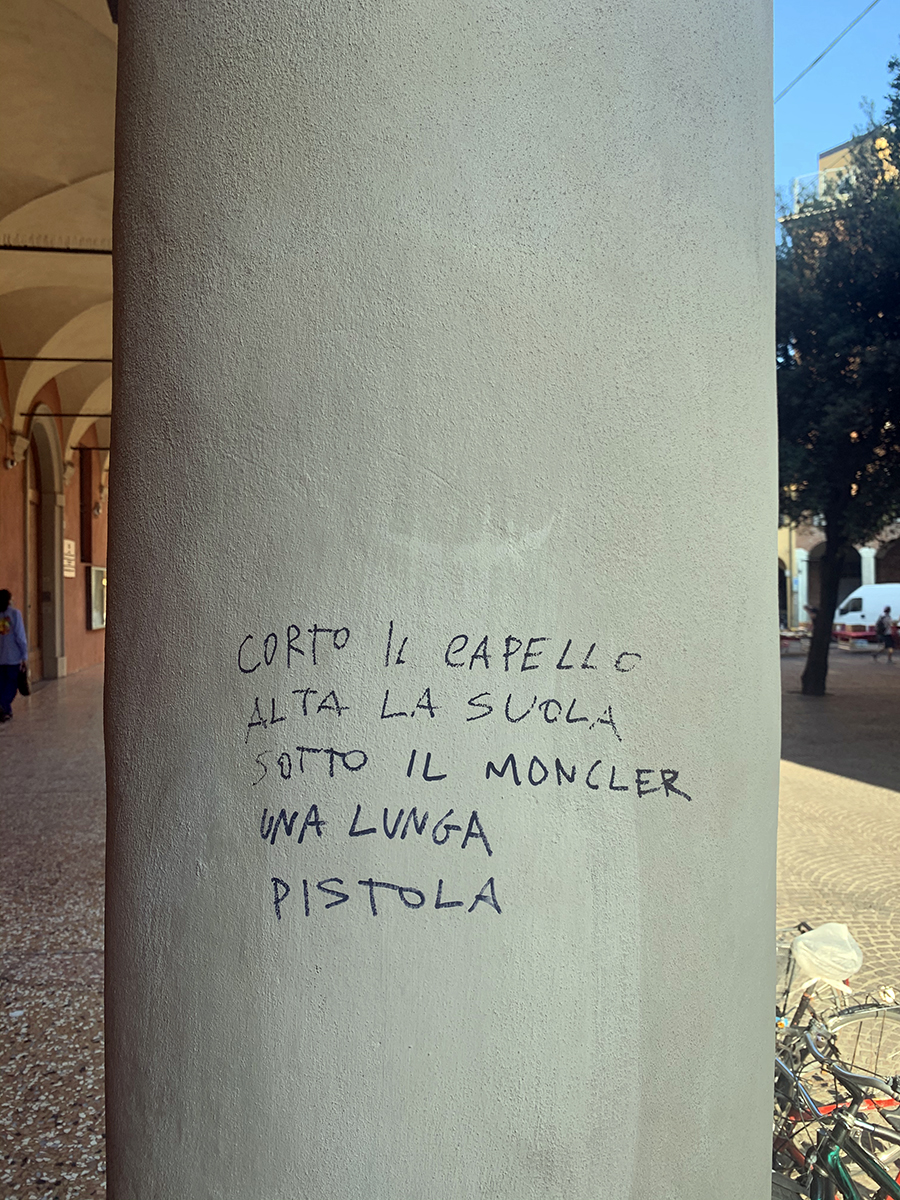 CORTO IL CAPELLO
ALTA LA SUOLA
SOTTO IL MONCLER
UNA LUNGA
PISTOLA